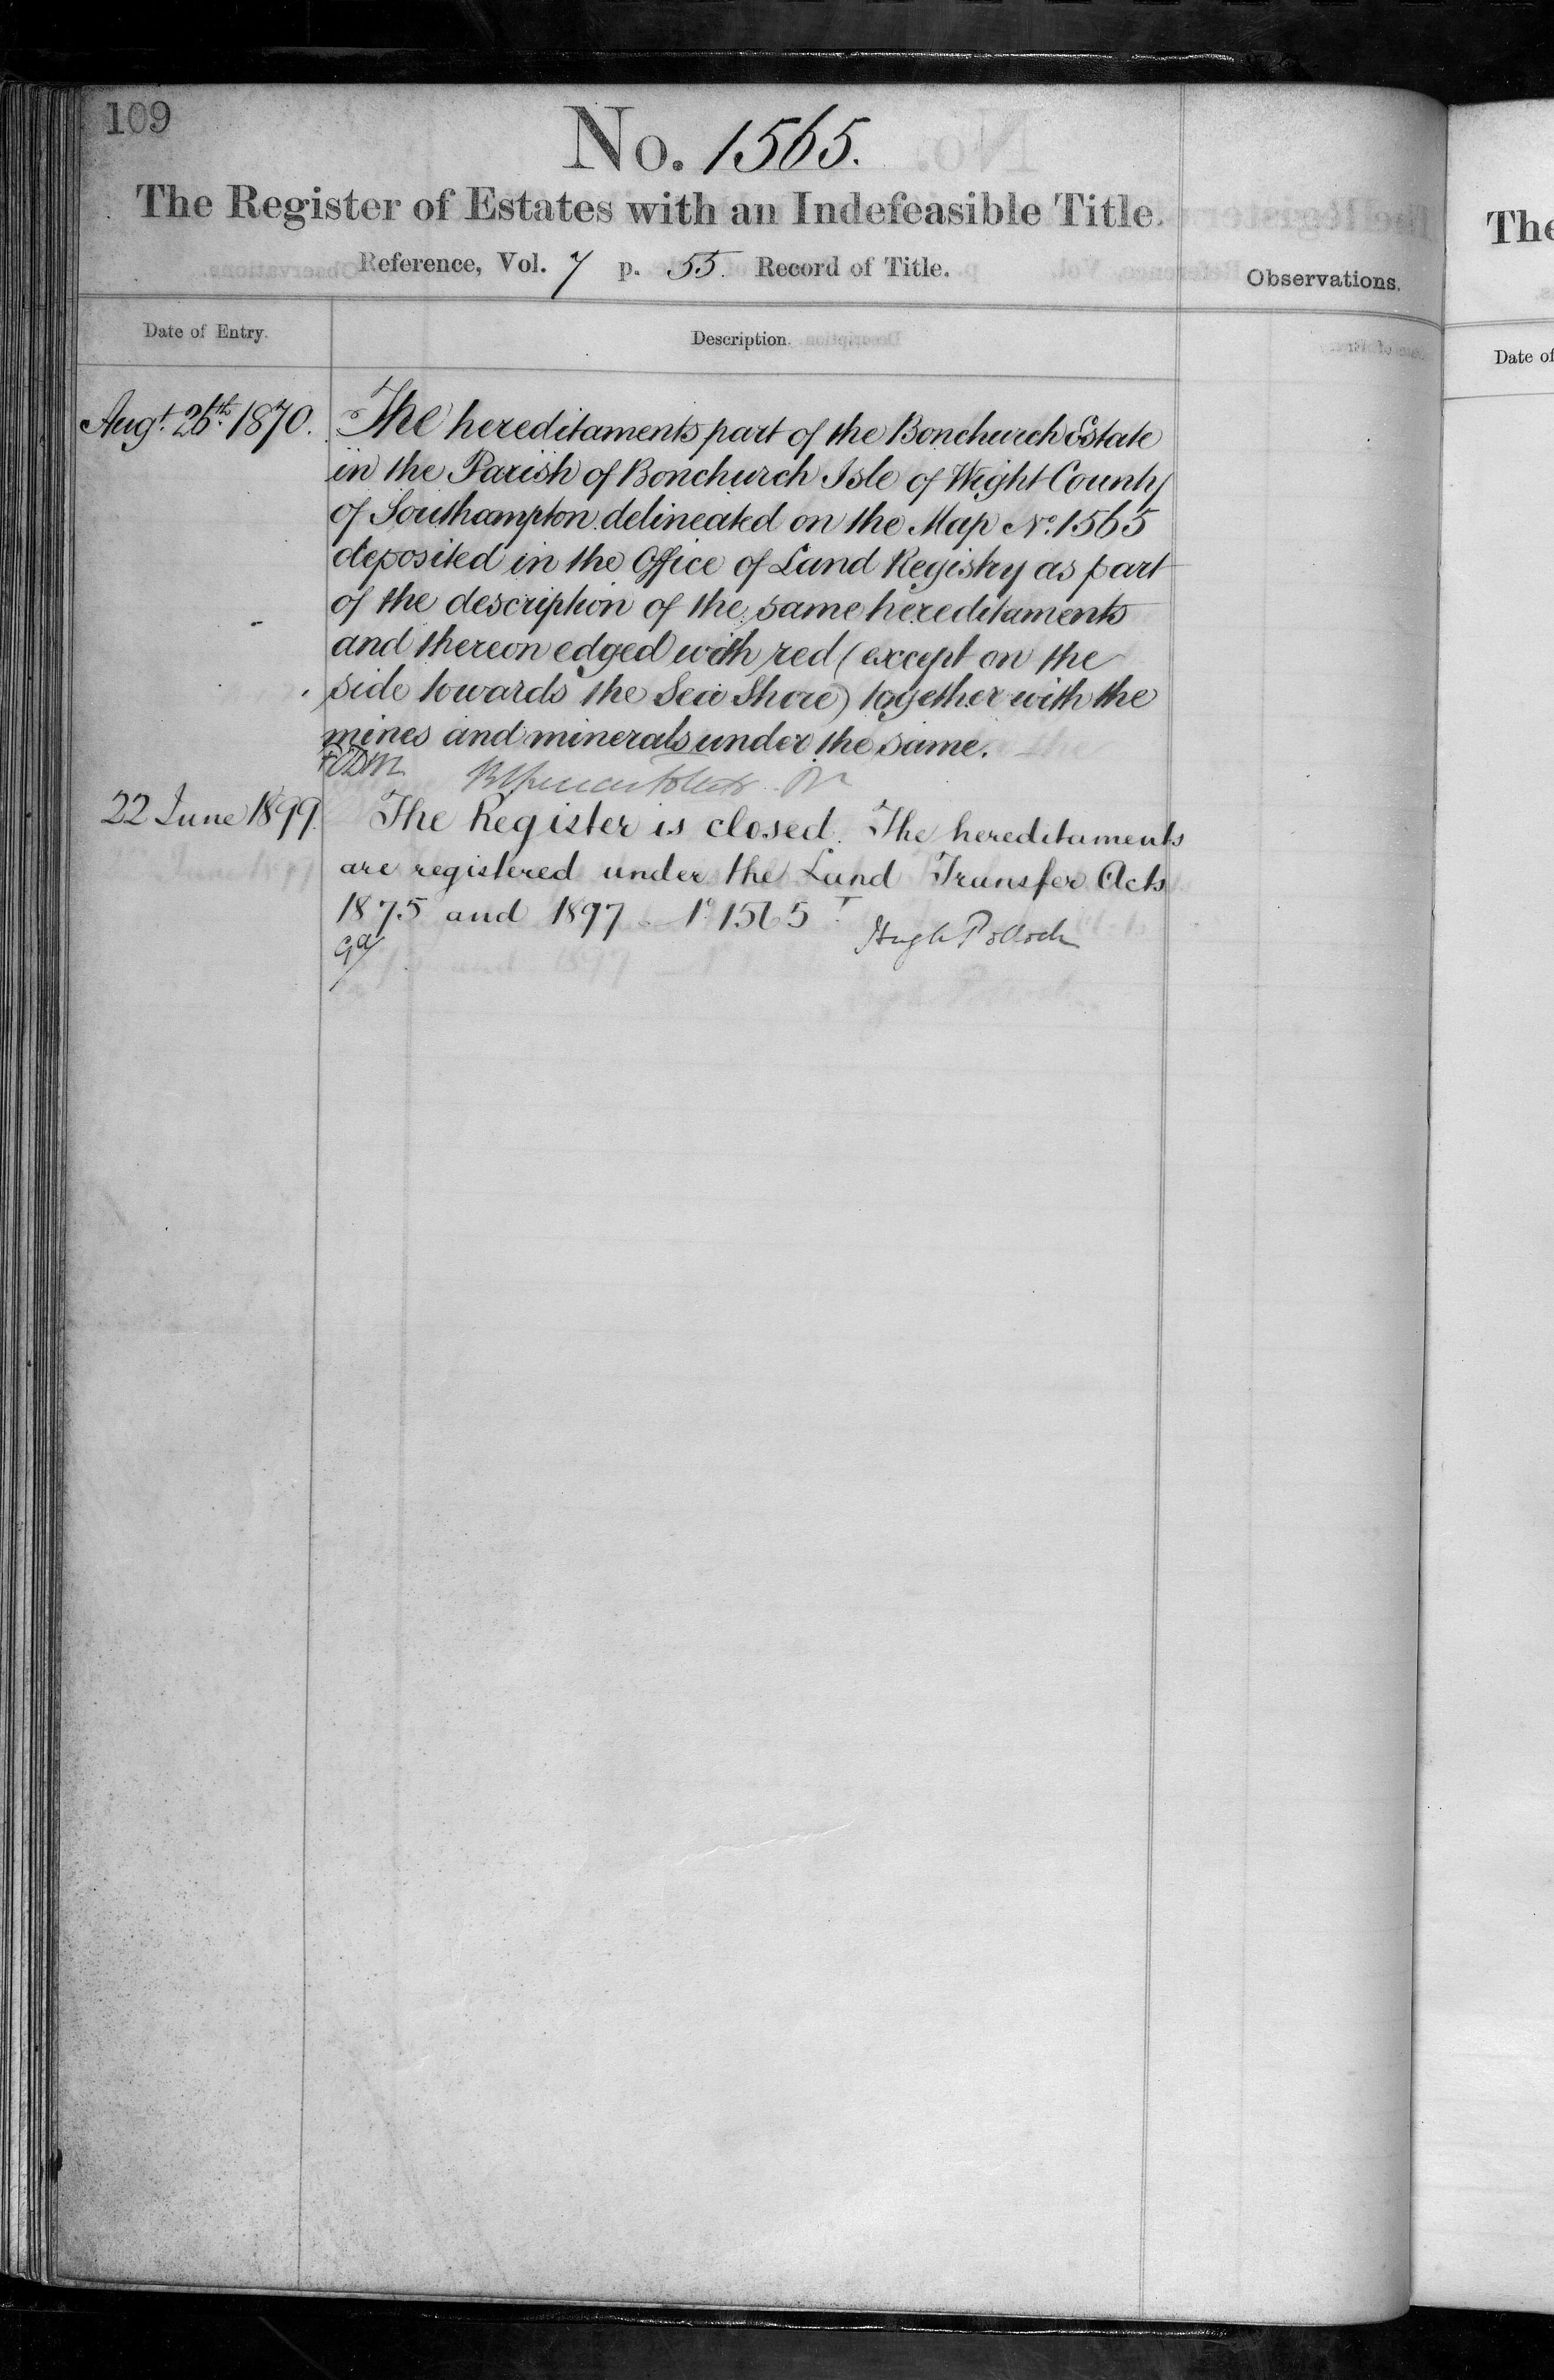 109
No. 1565.
The Register of Estates with an Indefeasible Title.
Reference, Vol. 7 p. 55. Record of Title.
Observations.
Date of Entry.
Description.
Augt. 26th. 1870.
The hereditaments part of the Bonchurch Estate
in the Parish of Bonchurch Isle of Wight County
of Southampton delineated on the Map No. 1565
deposited in the Office of Land Registry as part
of the description of the same hereditaments
and thereon edged with red (except on the
side towards the Sea Shore) together with the
mines and minerals under the same.
22 June 1899.
The Register is closed. The hereditaments
are registered under the Land Transfer Acts
1875 and 1897 No. 1565
Hugh Pollock
The
Date of